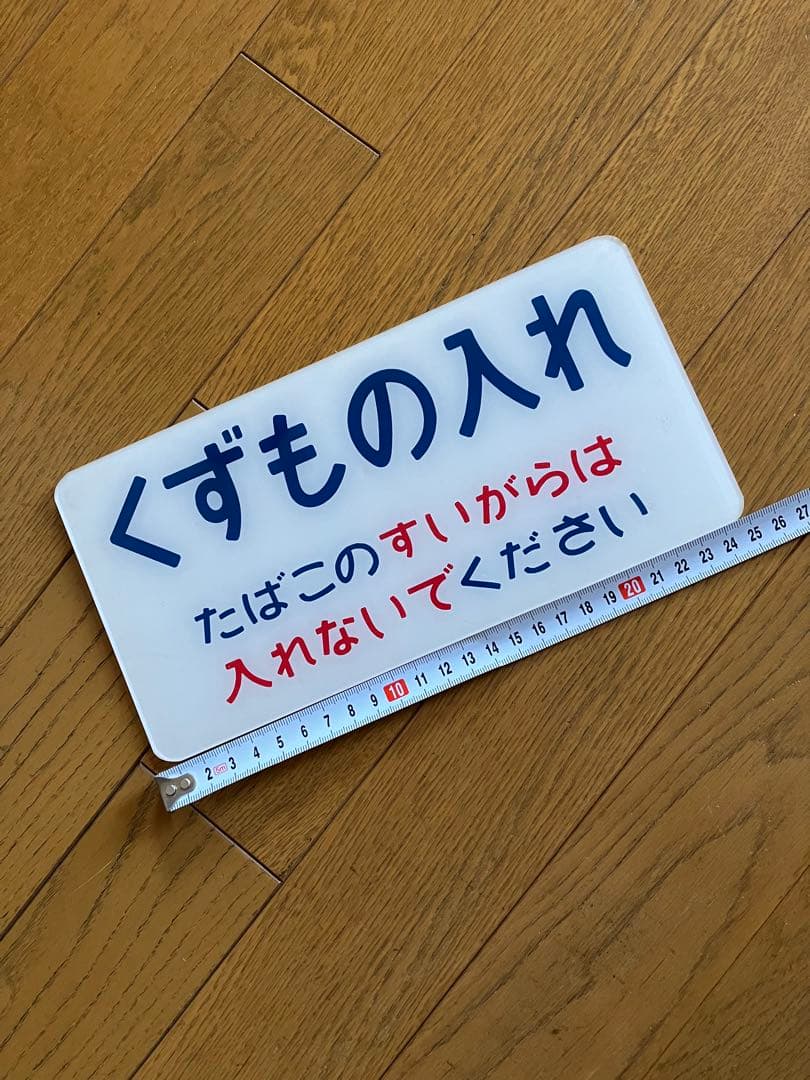 くずもの入れ
たばこのすいがらは
入れないでください
2 5m 3 4 5 6 7 8 9 10 11 12 13 14 15 16 17 18 19 20 21 22 23 24 25 26 27